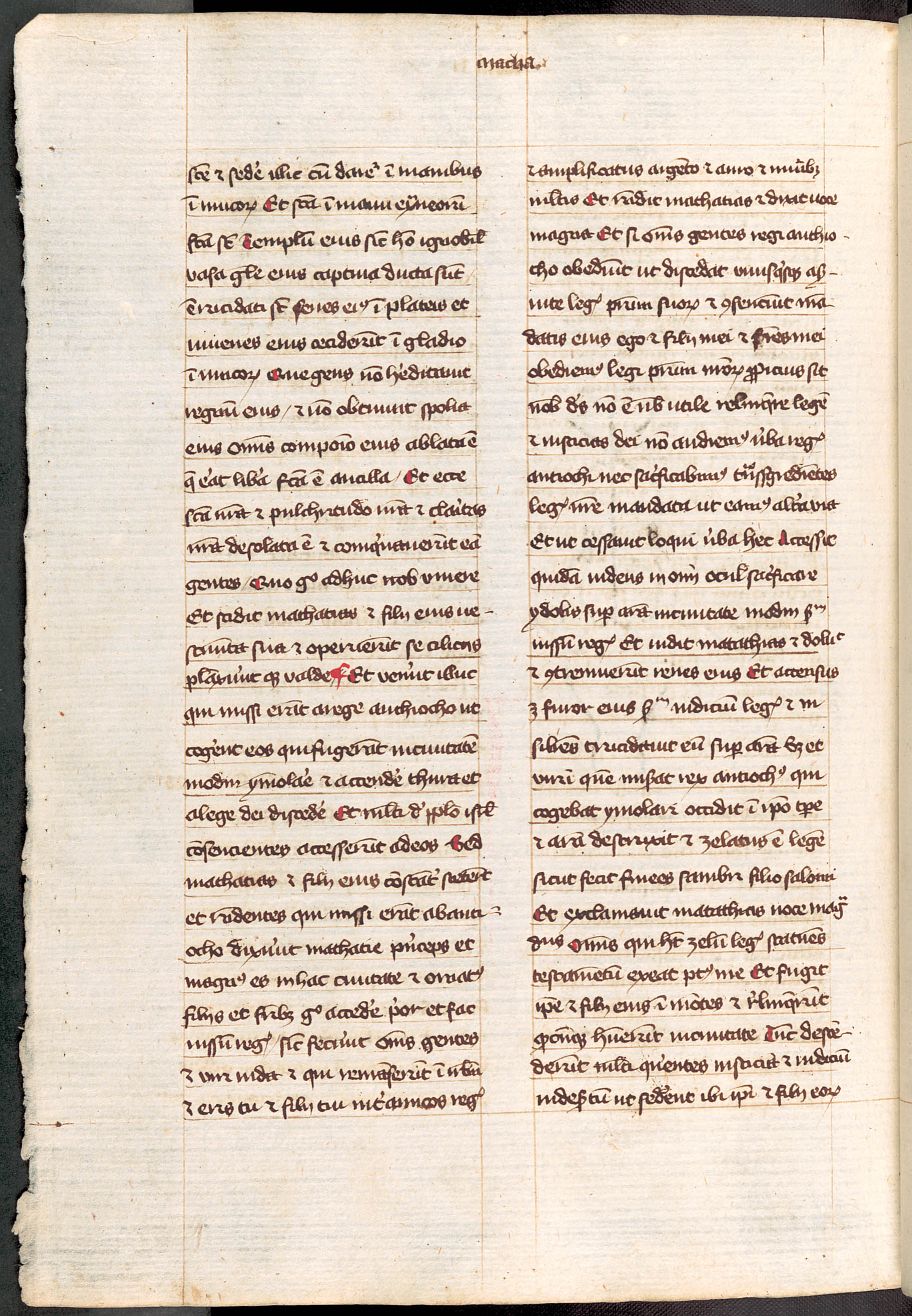 macha.
sc̄e ⁊ sedē illic cū darēt ī manibus
īmicoꝝ Et sc̄a ī manu ext̄neorū
fc̄a sc̄ Templū eius sic̄ hō ignobil̄
vasa gl̄e eius captiua ducta sūt
trucidati sc̄ senes eiꝰ ī plateis et
iuuenes eius ceciderūt ī gladio
īmicoꝝ Que gens nō h̓editauit
regnū eius / ⁊ nō obtinuit spolia
eius Om̄s compoīo eius ablata ē
q̄ e̓at lib̓a fc̄a ē ancilla / Et ecce
sc̄a nr̄a ⁊ pulchritudo nr̄a ⁊ clar̓itas
nr̄a desolata ē ⁊ coinq̓nauerūt eā
gentes / Quo g̊ adhuc nob̄ viuere
Et scidit mathatias ⁊ filij eius ue-
stimēta sua ⁊ operuerūt se ciliciis
⁊ planxer̄ūt valde Et venerūt illuc
qui missi erāt a rege anthiocho ut
coger̄ent eos qui fugerāt in ciuitatē
modin ymolar̄e ⁊ accendē thura et
a lege dei discedē Et multi d̓ ppl̄o isrl̄
cōsencientes accesserūt ad eos Sed
mathatias ⁊ filij eius cōstāt̓ steterūt
et r̄ndentes qui missi erāt ab anti-
ocho dixerūt mathatie p̓nceps et
magnꝰ es in hac ciuitate ⁊ ornatꝰ
filijs et fr̄ibꝫ g̊ accedē p̓or et fac
iussū regꝭ sic̄ fecerūt om̄s gentes
⁊ viri iuda ⁊ qui remāserūt ī ihrl̄m
⁊ eris tu ⁊ filij tui int̓ amicos regꝭ
⁊ amplificatus argēto ⁊ auro ⁊ mun̓ibꝫ
multis Et r̄ndit mathatias ⁊ dixit uoce
magna Et si om̄s gentes regi anthio-
cho obediūt ut discedat vnusqsqꝫ a s̓-
uitute legꝭ prūm suoꝝ ⁊ ꝯsenciūt mā
datis eius ego ⁊ filij mei ⁊ fr̄es mei
obediemꝰ legi prūm nr̄oꝝ ꝓpicius sit
nob̄ dꝰs nō ē nob̄ utile relinq̓re legē
⁊ iusticias dei nō audiemꝰ ūba regꝭ
antiochi nec sacrificabimꝰ tn̄sgredientes
legꝭ nr̄e mandata ut eamꝰ alt̓a via
Et ut cessauit loqui ūba hec Accessit
quidā iudeus in om̄i ocul̄ sac̓ficare
ydolis sup̱ arā in ciuitate modin s̄cdm
iussū regꝭ Et uidit matathias ⁊ doluit
⁊ ꝯtremuerūt renes eius Et accensus
ē furor eius s̄cdm iudiciū legꝭ ⁊ in
siliēs trucidauit eū sup̱ arā Sꝫ et
virū quē miserat rex antiochꝰ qui
cogebat ymolari occidit ī ip̄o tp̱e
⁊ arā destruxit ⁊ zelatus ē legē
sicut fecit finees zambri filio salomi
Et exclamauit matathias uoce mag̓
dn̄s Om̄is qui ht̄ zelū legꝭ statuēs
testamētū exeat pꝰt me Et fugit
ip̄e ⁊ filij eius ī mōtes ⁊ r̓linq̓rūt
q̄cūqꝫ h̓uerūt in ciuitate Tūc descē-
derūt mlt̄i querentes iusticiā ⁊ iudiciū
in desertū ut sederent ibi ip̄i ⁊ filij eoꝝ